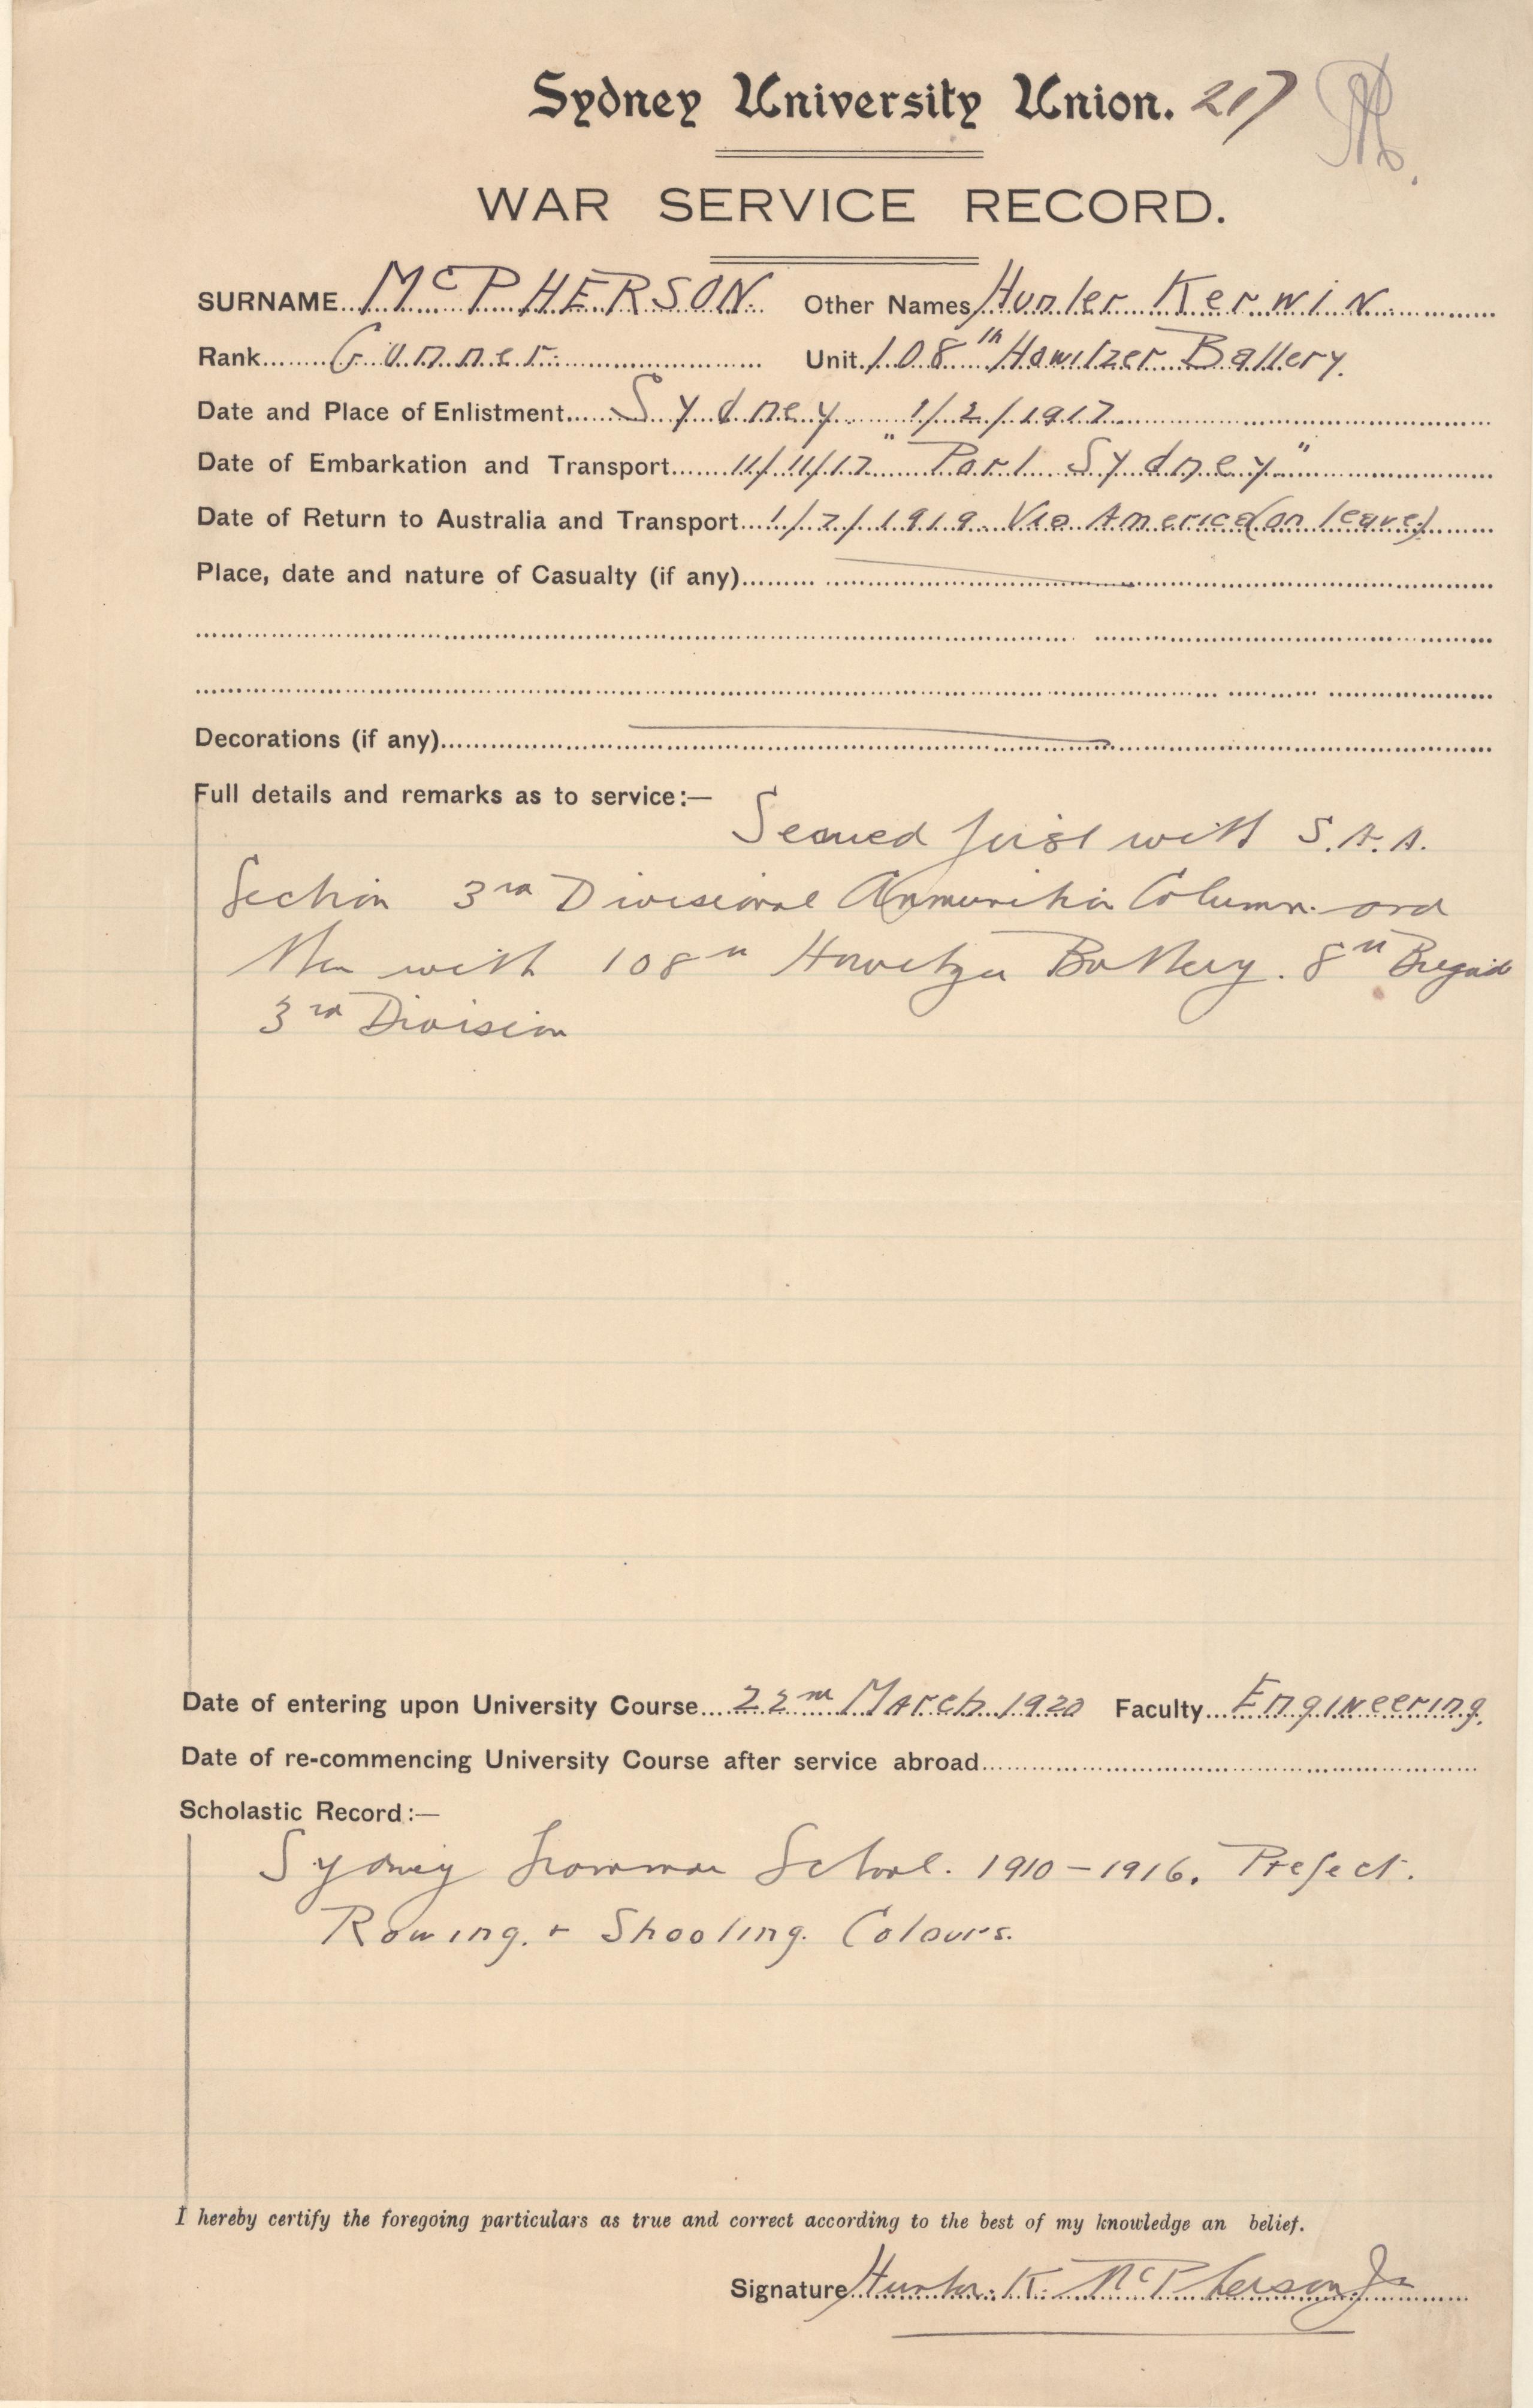 Sydney University Union. 217
WAR SERVICE RECORD.
SURNAME McPHERSON Other Names Hunter Kerwin
Rank Gunner Unit 108th Howitzer Battery.
Date and Place of Enlistment Sydney 1/2/1917
Date of Embarkation and Transport 11/11/17 "Port Sydney"
Date of Return to Australia and Transport 1/7/1919 Via America (on leave)
Place, date and nature of Casualty (if any)
Decorations (if any)
Full details and remarks as to service:—
Served first with S.A.A.
Section 3rd Divisional Ammunition Column and
then with 108th Howitzer Battery. 8th
3rd Division
Date of entering upon University Course 22nd March 1920 Faculty Engineering.
Date of re-commencing University Course after service abroad
Scholastic Record:—
Sydney Grammar School. 1910-1916. Prefect.
Rowing. + Shooting. Colours.
I hereby certify the foregoing particulars as true and correct according to the best of my knowledge an belief.
Signature Hunter. K. McPherson Jr